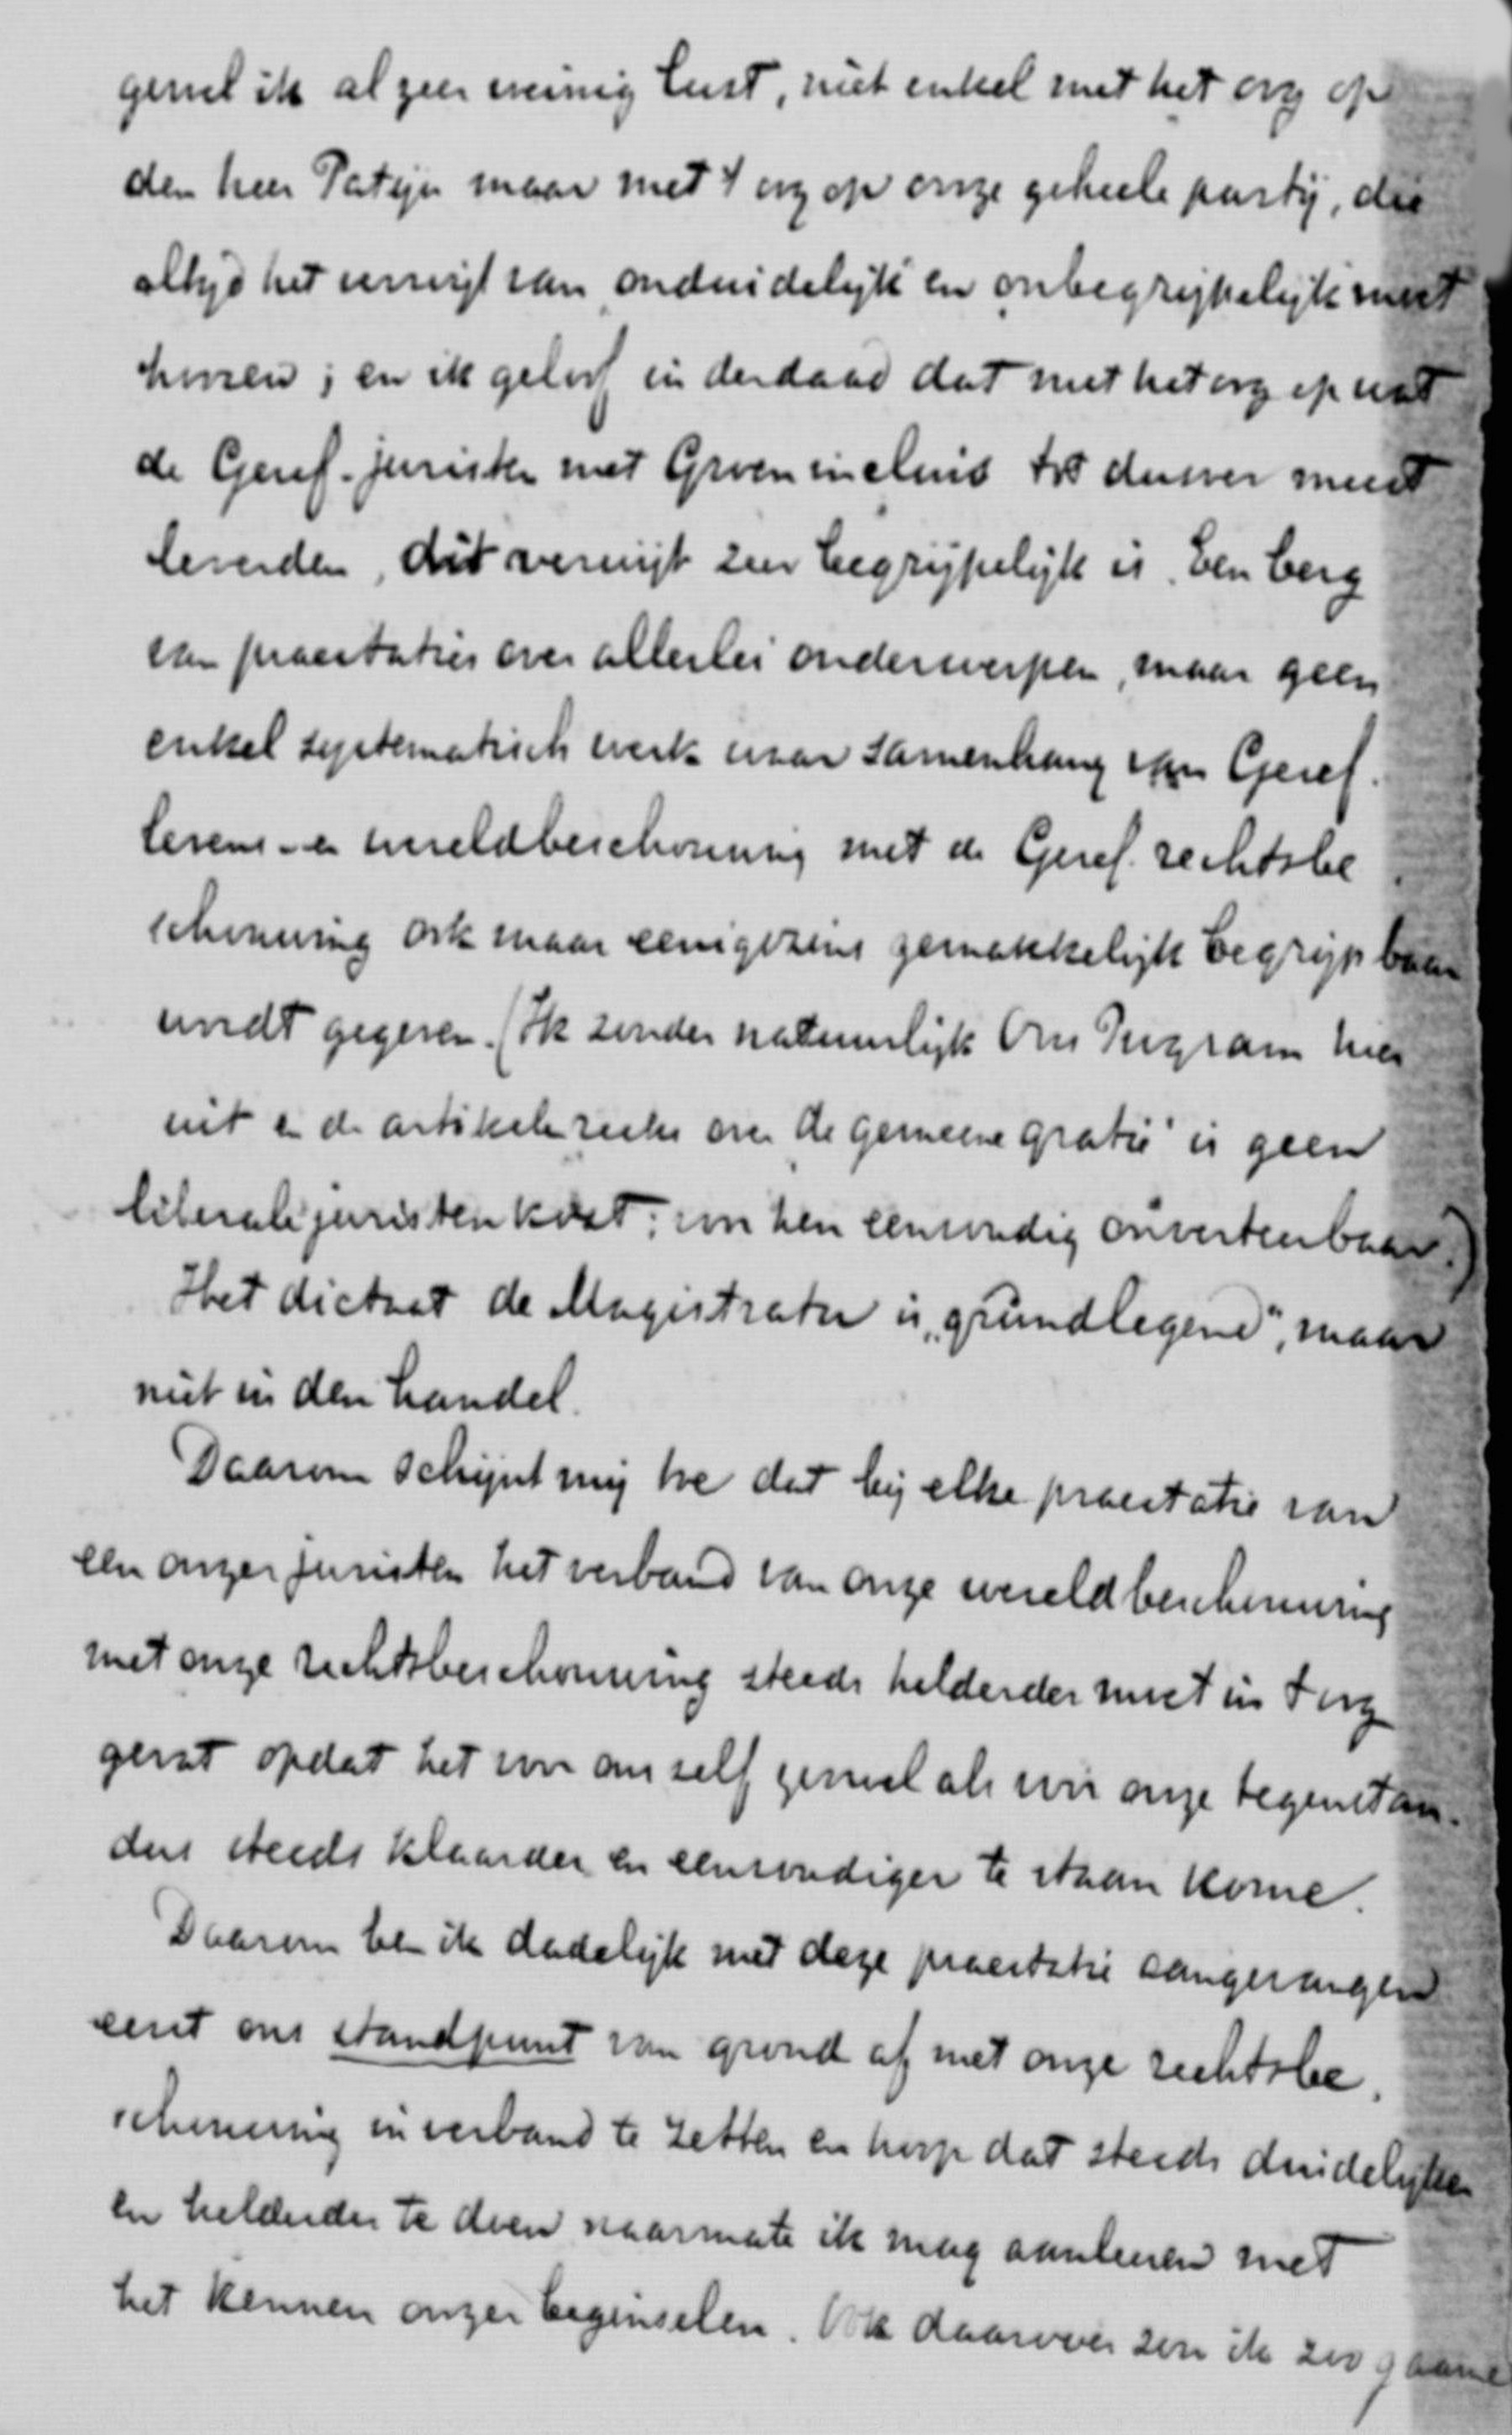 gevoel ik al zeer weinig lust, niet enkel met het oog op
den heer Patijn maar met 't oog op onze geheele partij, die
altijd het verwijt van onduidelijk en onbegrijpelijk moet
hooren; en ik geloof inderdaad dat met het oog op wat
de Geref. juristen met Groen incluis tot dusver meest
leverden, dit verwijt zeer begrijpelijk is. Een berg
van praestaties over allerlei onderwerpen, maar geen
enkel systematisch werk waar samenhang van Geref.
levens- en wereldbeschouwing met de Geref. rechtsbe
schouwing ook maar eenigszins gemakkelijk begrijpbaar
wordt gegeven. (Ik zonder natuurlijk Ons Program hier
uit en de artikelenreeks over de gemeene gratie is geen
liberale juristenkost; voor hen eenvoudig onverteerbaar.)
Het dictaat de Magistratu is „grundlegend", maar
niet in den handel.
Daarom schijnt mij toe dat bij elke praestatie van
een onzer juristen het verband van onze wereldbeschouwing
met onze rechtsbeschouwing steeds helderder moet in 't oog
gevat opdat het voor ons zelf zoowel als voor onze tegenstan-
ders steeds klaarder en eenvoudiger te staan kome.
Daarom ben ik dadelijk met deze praestatie aangevangen
eerst ons standpunt van grond af met onze rechtsbe.
schouwing in verband te zetten en hoop dat steeds duidelijker
en helderder te doen naarmate ik mag aanleeren met
het kennen onzer beginselen. Ook daarover zou ik zoo gaarne